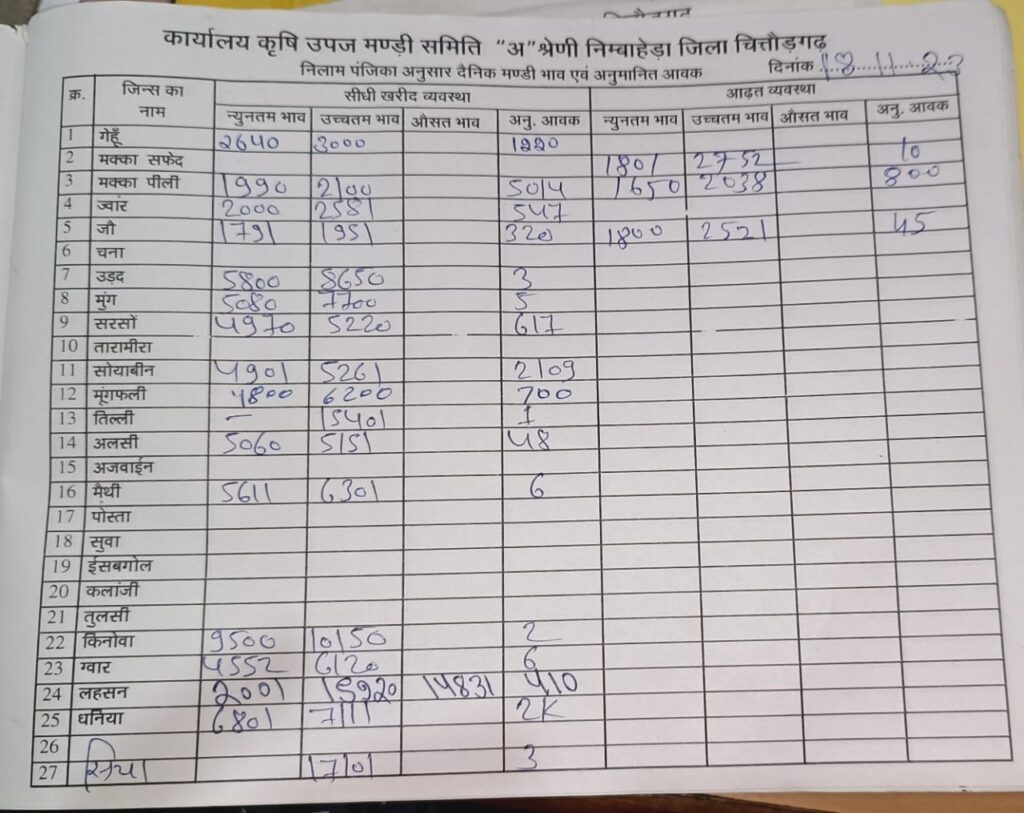 कार्यालय कृषि उपज मण्ड़ी समिति “अ” श्रेणी निम्बाहेड़ा जिला चित्तौड़गढ़
निलाम पंजिका अनुसार दैनिक मण्डी भाव एवं अनुमानित आवक दिनांक 18.11.23
क्र. जिन्स का नाम सीधी खरीद व्यवस्था आढ़त व्यवस्था
न्युनतम भाव उच्चतम भाव औसत भाव अनु. आवक न्युनतम भाव उच्चतम भाव औसत भाव अनु. आवक
1 गेहूँ 2640 3000 1220
2 मक्का सफेद 1801 2752 10
3 मक्का पीली 1990 2100 5014 1650 2038 800
4 ज्वार 2000 2581 547
5 जौ 1791 1951 320 1800 2521 45
6 चना
7 उड़द 5800 8650 3
8 मुंग 5080 7700 5
9 सरसों 4970 5220 617
10 तारामीरा
11 सोयाबीन 4901 5261 2109
12 मूंगफली 4800 6200 700
13 तिल्ली — 15401 1
14 अलसी 5060 5151 48
15 अजवाईन
16 मैथी 5611 6301 6
17 पोस्ता
18 सुवा
19 ईसबगोल
20 कलांजी
21 तुलसी
22 किनोवा 9500 10150 2
23 ग्वार 4552 6120 6
24 लहसन 2001 15920 14831 410
25 धनिया 6801 7111 2K
26
27 17101 3